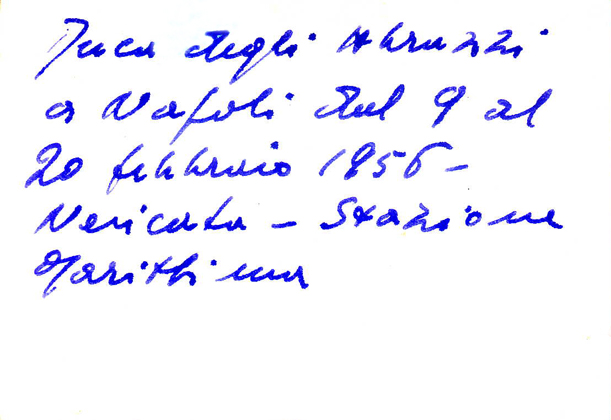 Duca degli Abruzzi
a Napoli dal 9 al
20 febbraio 1956 -
Nericata - Stazione
Marittima